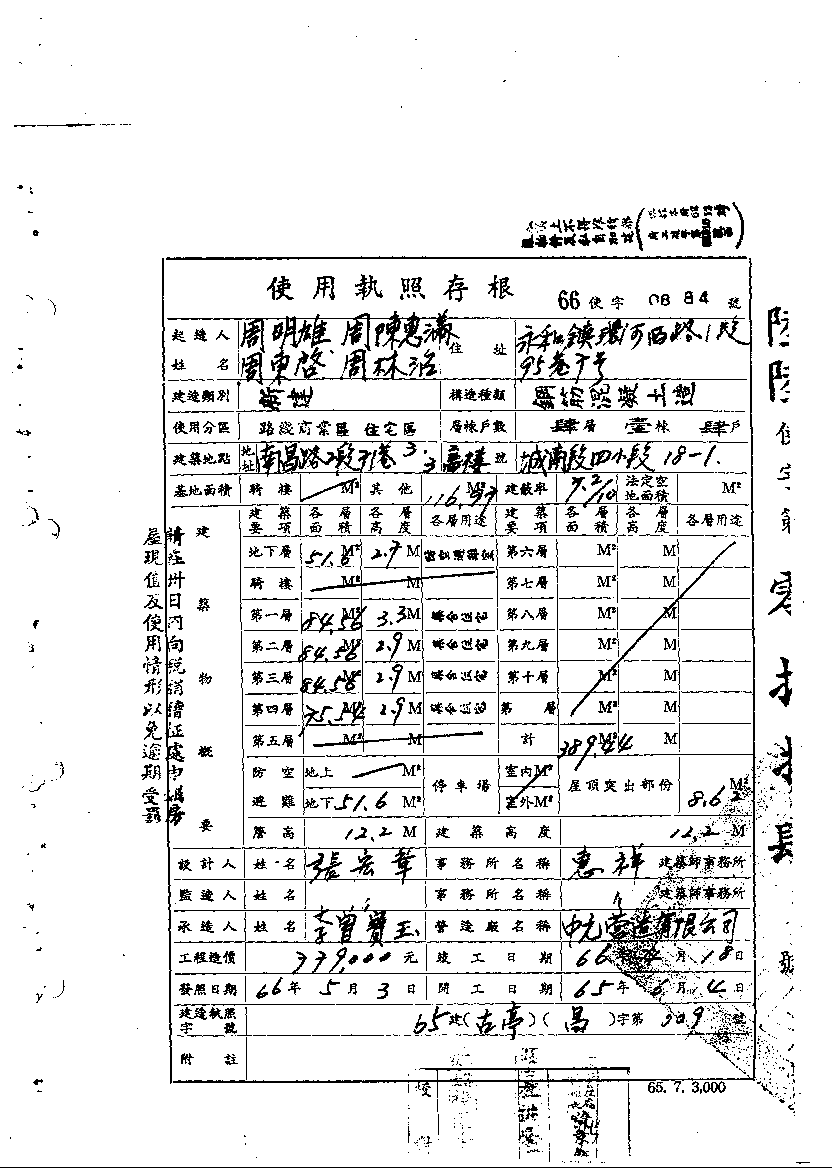 使用執照存根 66使字 0884 號
起造人姓名 周明雄 周陳惠滿 周東啓 周林治 住址 永和鎮環河西路1段95巷
建造類別 新建 構造種類 鋼筋混凝土造
使用分區 路綫商業區 住宅區 層棟戶數 肆層 壹棟 肆戶
建築地點 地址 南昌路2段 號 城南段四小段18-1
基地面積 騎樓 M² 其他 116.97 M² 建蔽率 7.2/10 法定空地面積 M²
建築物概要
建築要項 各層面積 各層高度 各層用途 建築要項 各層面積 各層高度 各層用途
地下層 51.6 M² 2.7 M 第六層 M² M
騎樓 M² M 第七層 M² M
第一層 84.56 M² 3.3 M 第八層 M² M
第二層 84.56 M² 2.9 M 第九層 M² M
第三層 84.56 M² 2.9 M 第十層 M² M
第四層 75.54 M² 2.9 M 第 層 M² M
第五層 M² M 計 389.44 M² M
防空避難 地上 M² 停車場 室內M² 屋頂突出部份 8.62 M²
地下 51.6 M² 室外M²
簷高 12.2 M 建築高度 12.2 M
設計人 姓名 張宏華 事務所名稱 惠祥 建築師事務所
監造人 姓名 事務所名稱 建築師事務所
承造人 姓名 李曾寶玉 營造廠名稱 中光營造有限公司
工程造價 339,000 元 竣工日期 66年4月18日
發照日期 66年5月3日 開工日期 65年6月4日
建造執照字號 65建(古亭)(昌)字第 309 號
附註
65. 7. 3,000
請在卅日內向稅捐稽征處申報房
屋現值及使用情形以免逾期受罰